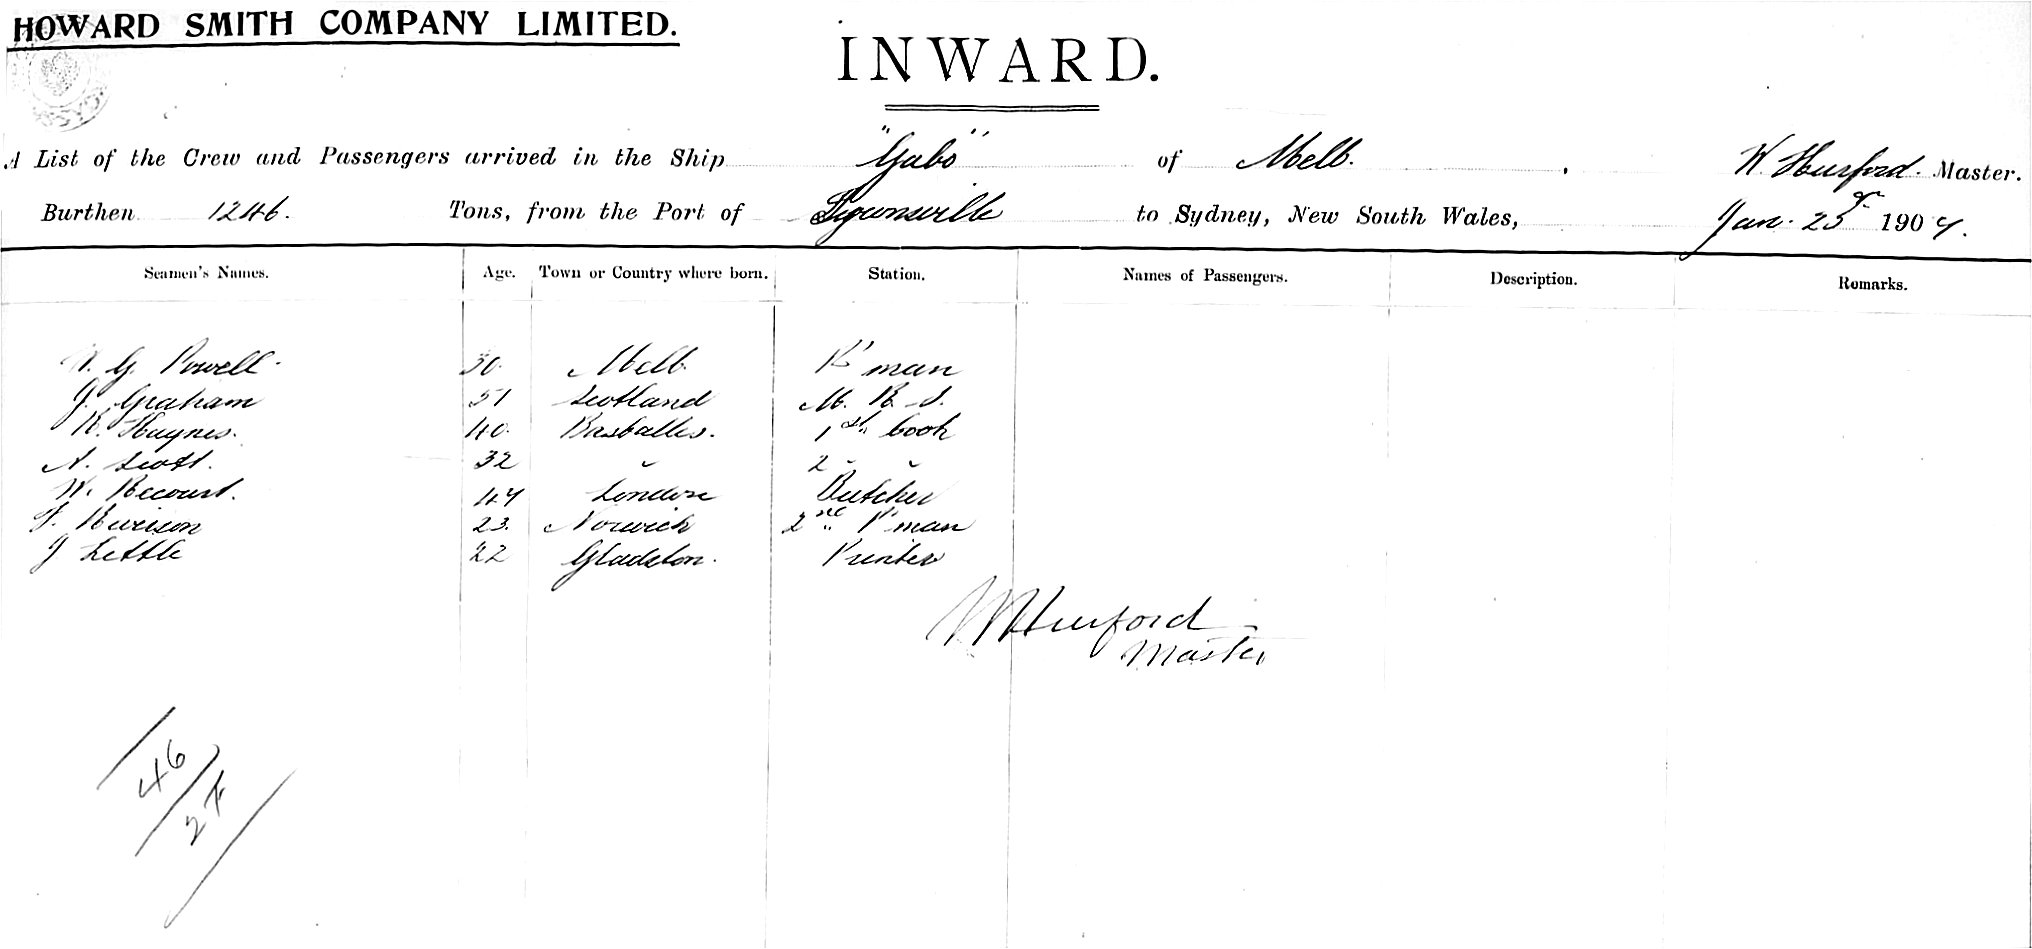 HOWARD SMITH COMPANY LIMITED.
INWARD.
A List of the Crew and Passengers arrived in the Ship "Gabo" of Melb. W Hurford. Master.
Burthen 1246. Tons, from the Port of Townsville to Sydney, New South Wales, Jan. 25 1904.
Seamen's Names. Age. Town or Country where born. Station. Names of Passengers. Description. Remarks.
W. G. Powell 30. Melb. P'man
J. Graham 51 Scotland M. R. S.
R. Haynes. 40. 1st Cook
A. Scott. 32 " 2 "
W. 47 London Butcher
F. 23. Norwich 2nd P'man
J Little 22 Gladston. Printer
W Hurford
Master
46
27